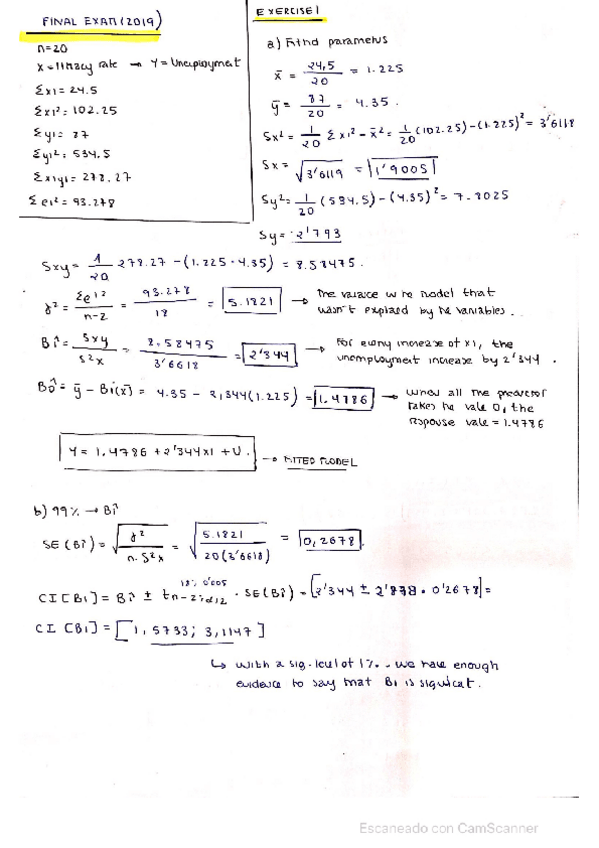 FINAL EXAM (2019)
n=20
X = literacy rate → Y = Unemployment
Σx1 = 24.5
Σx1² = 102.25
Σy1 = 87
Σy1² = 534.5
Σx1y1 = 278.27
Σe1² = 93.278
EXERCISE 1
a) Find parameters
x̄ = 24,5 / 20 = 1.225
ȳ = 87 / 20 = 4.35.
Sx² = 1/20 Σx1² − x̄² = 1/20 (102.25) − (1.225)² = 3'6118
Sx = √3'6119 = 1'9005
Sy² = 1/20 (534.5) − (4.35)² = 7.8025
Sy = 2'793
Sxy = 1/20 278.27 − (1.225 · 4.35) = 8.58475.
γ² = Σe1² / n-2 = 93.278 / 18 = 5.1821 → The variace w he model that
wasn't explaied by he variables.
B1̂ = Sxy / S²x = 8.58475 / 3'6618 = 2'344 → For every increase of x1, the
unemployment increase by 2'344.
B0̂ = ȳ − B1̂(x̄) = 4.35 − 2,344(1.225) = 1.4786 → When all the predictor
takes he vale 0, the
response vale = 1.4786
Y = 1.4786 + 2'344x1 + U. → FITED MODEL
b) 99% → B1̂
SE(B1̂) = √(γ² / n·S²x) = √(5.1821 / 20(3'6618)) = 0,2678.
18, 0'005
CI[B1] = B1̂ ± tn-2;α/2 · SE(B1̂) = [2'344 ± 2'878 · 0'2678] =
CI[B1] = [1,5733; 3,1147]
↳ with a sig. level of 1%. we have enough
evidence to say that B1 is significat.
Escaneado con CamScanner